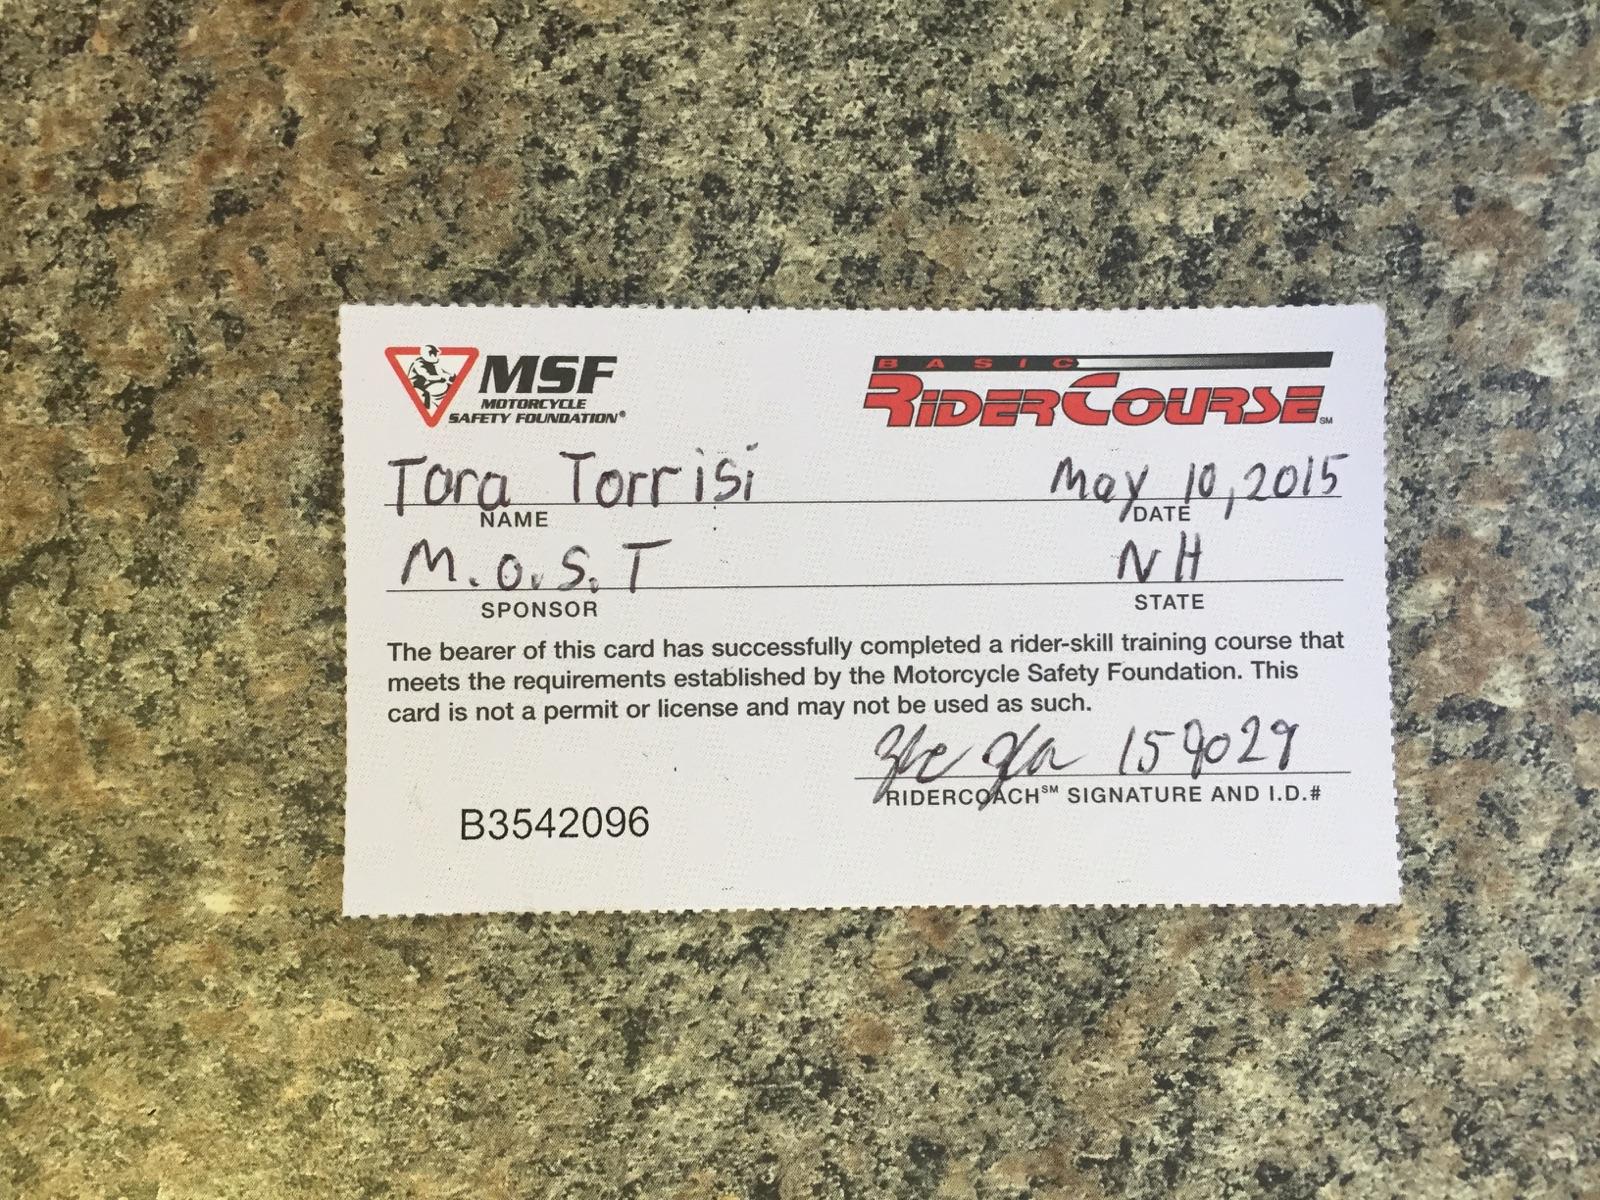 MSF
MOTORCYCLE
SAFETY FOUNDATION®
BASIC
RIDERCOURSE SM
Tara Torrisi May 10, 2015
NAME DATE
M.O.S.T NH
SPONSOR STATE
The bearer of this card has successfully completed a rider-skill training course that
meets the requirements established by the Motorcycle Safety Foundation. This
card is not a permit or license and may not be used as such.
159029
RIDERCOACH℠ SIGNATURE AND I.D.#
B3542096